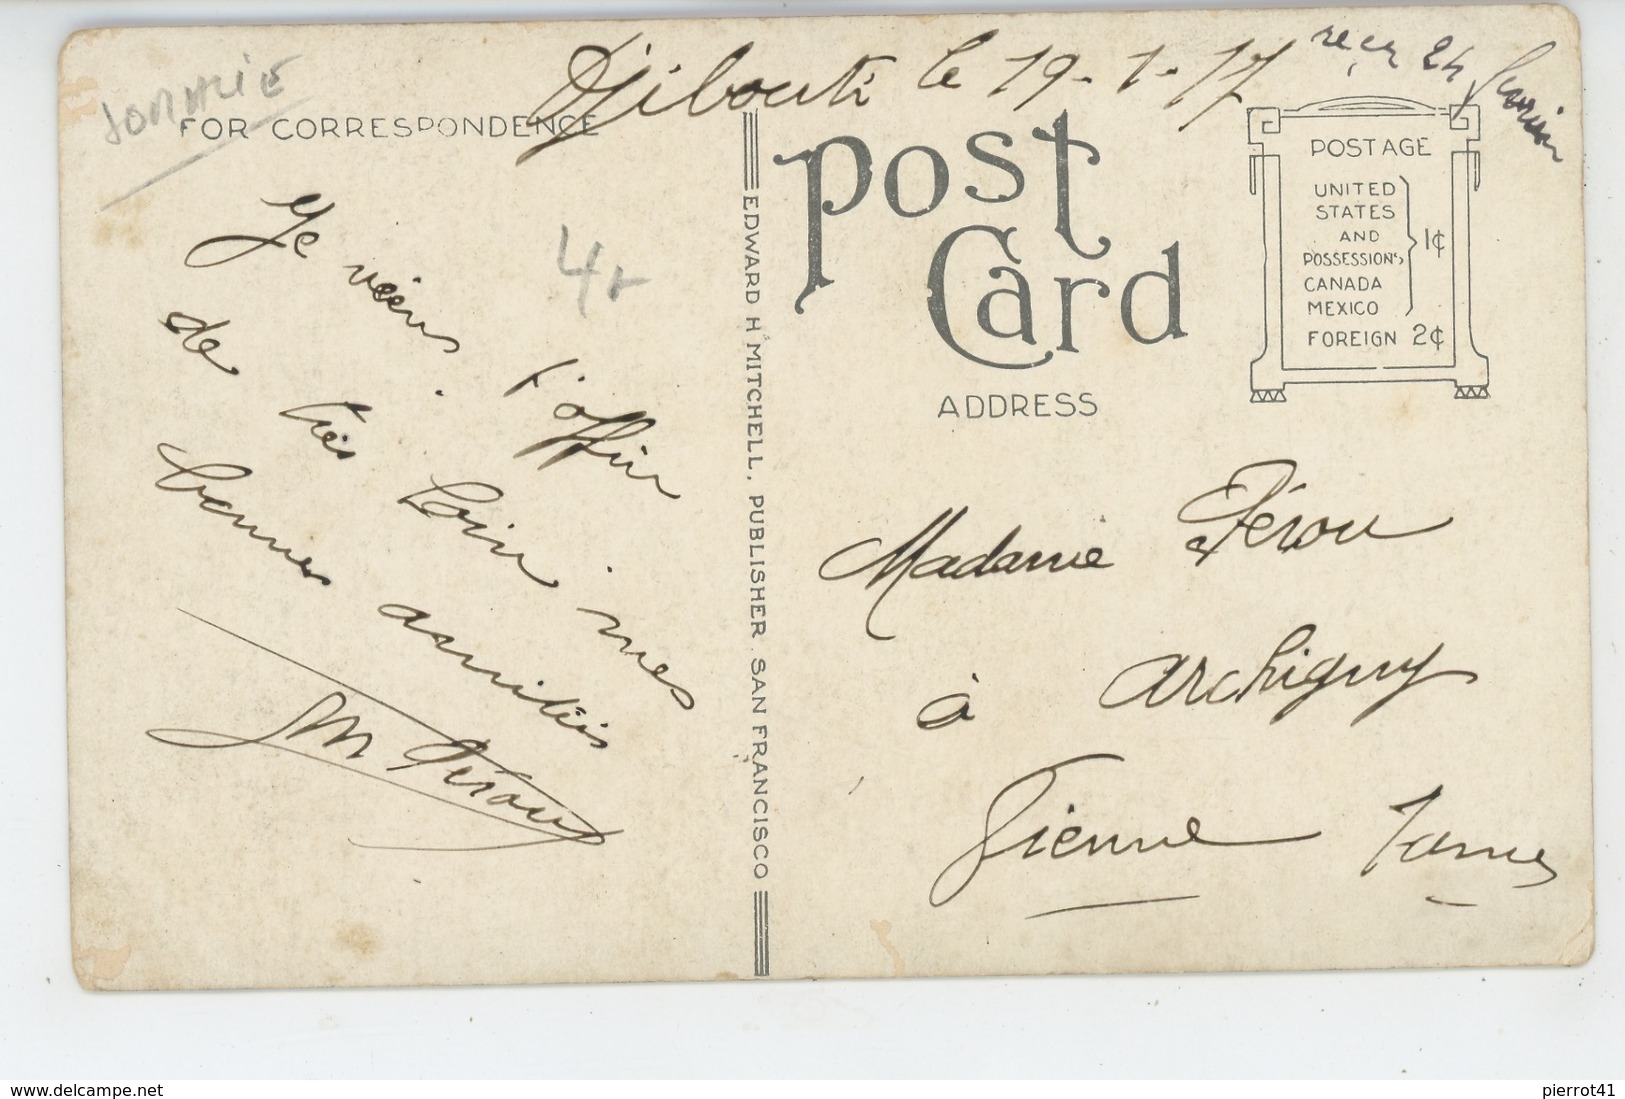 SOMALIE
Djibouti le 19-1-17
reçu 24
FOR CORRESPONDENCE
Je viens t'offrir
de très loin mes
bonnes amitiés
M Pérou
4
EDWARD H. MITCHELL, PUBLISHER. SAN FRANCISCO
Post
Card
ADDRESS
POSTAGE
UNITED
STATES
AND
POSSESSIONS,
CANADA
MEXICO
1¢
FOREIGN 2¢
Madame Pérou
à Archigny
Vienne
delcampe.net
pierrot41